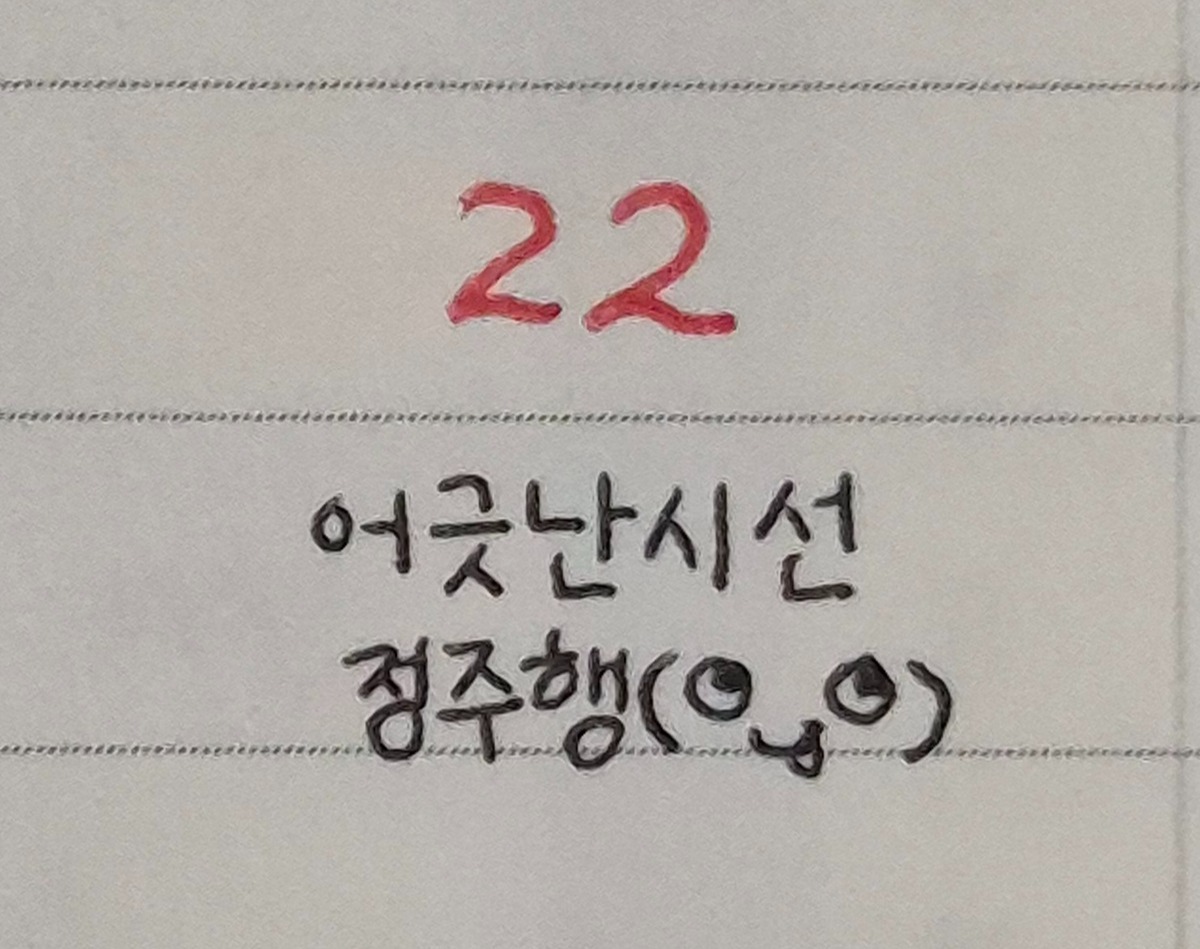 22
어긋난시선
정주행(◕ퟝ◕)